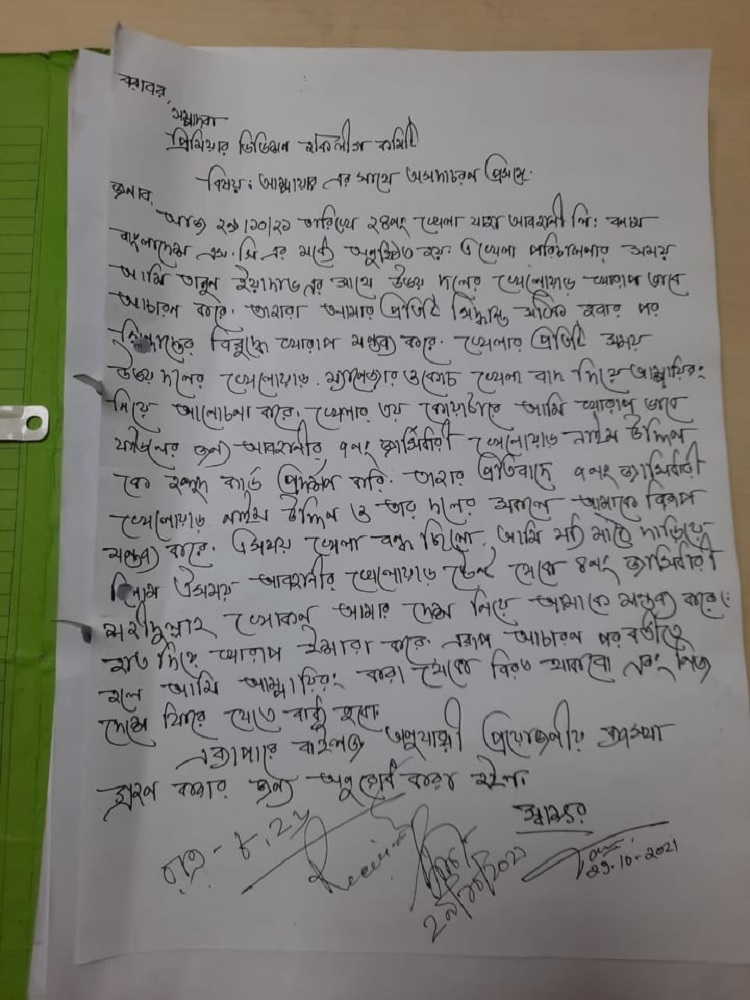 বরাবর,
সম্পাদক
প্রিমিয়ার ডিভিশন হকি লীগ কমিটি
বিষয়: আম্পায়ার এর সাথে অসদাচরন প্রসঙ্গে।
জনাব,
আজ ২৯/১০/২১ তারিখে ২৪নং খেলা যাহা আবাহনী লি: বনাম
বাংলাদেশ এস.সি এর মধ্যে অনুষ্ঠিত হয়। এ খেলা পরিচালনার সময়
আমি এর সাথে উভয় দলের খেলোয়াড় খারাপ ভাবে
আচারন করে। তাহারা আমার প্রতিটি সিদ্ধান্ত সঠিক হবার পর
সিদ্ধান্তের বিরুদ্ধে খারাপ মন্তব্য করে। খেলার প্রতিটি সময়
উভয় দলের খেলোয়াড়, ম্যানেজার ও কোচ খেলা বাদ দিয়ে আম্পায়িরং
নিয়ে আলোচনা করে। খেলার ৩য় কোয়ার্টারে আমি খারাপ ভাবে
ফাউলের জন্য আবাহনীর ৭নং জার্সিধারী খেলোয়াড় নাইম উদ্দিন
কে হলুদ কার্ড প্রদর্শন করি। তাহার প্রতিবাদে ৭নং জার্সিধারী
খেলোয়াড় নাইম উদ্দিন ও তার দলের সকলে আমাকে বিরূপ
মন্তব্য করে। ঐসময় খেলা বন্ধ ছিলো, আমি মধ্য মাঠে দাড়িয়ে
ছিলাম ঐসময় আবাহনীর খেলোয়াড় টেন্ট থেকে ৪নং জার্সিধারী
শহীদুল্লাহ খোকন আমার দেশ নিয়ে আমাকে মন্তব্য করে।
হাত দিয়ে খারাপ ইশারা করে। এরূপ আচারন পরবর্তীতে
হলে আমি আম্পায়িরং করা থেকে বিরত থাকবো এবং নিজ
দেশে ফিরে যেতে বাধ্য হবো।
এব্যাপারে বাইলজ অনুযায়ী প্রয়োজনীয় ব্যবস্থা
গ্রহন করার জন্য অনুরোধ করা হইল।
স্বাক্ষর
২৯/১০/২০২১
29-10-2021